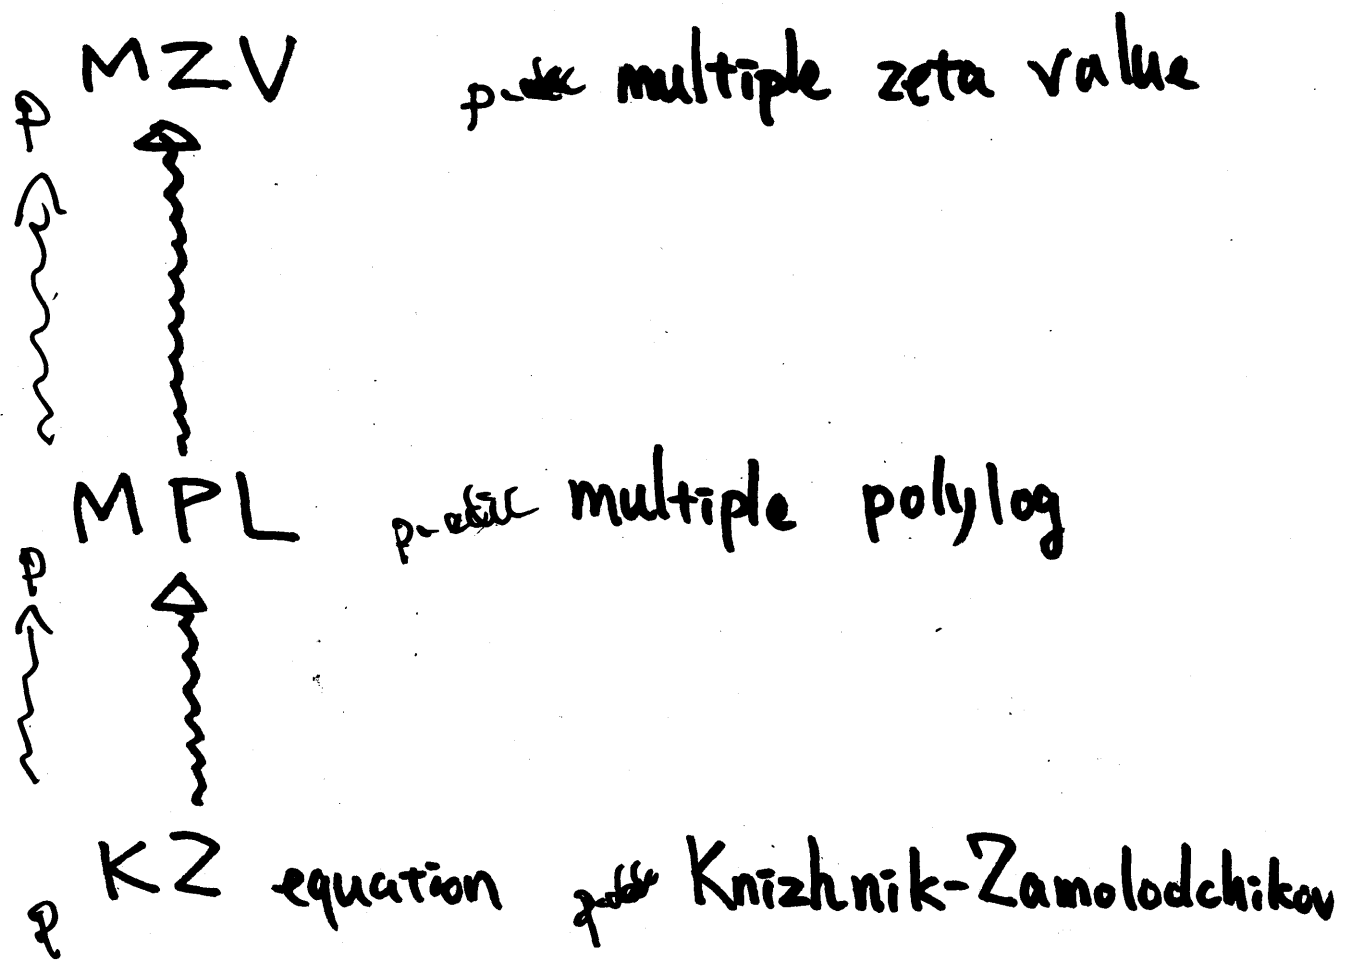 p MZV p-adic multiple zeta value
p MPL p-adic multiple polylog
p KZ equation p-adic Knizhnik-Zamolodchikov